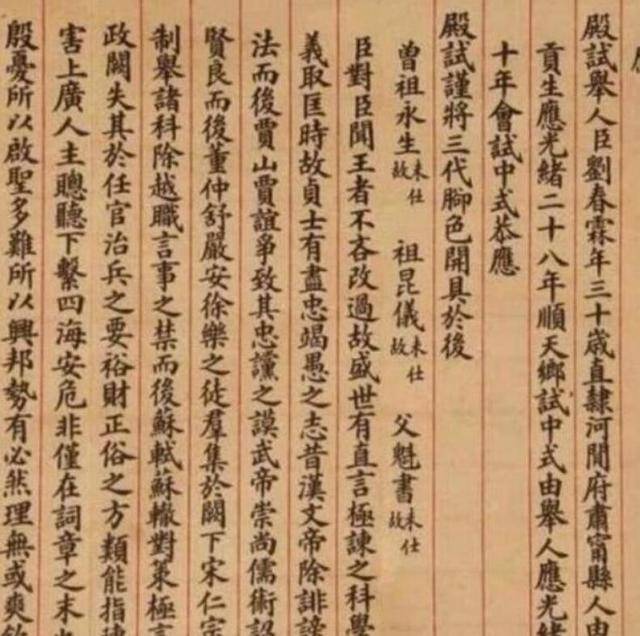 殿試舉人臣劉春霖年三十歲直隸河間府肅甯縣人由
貢生應光緒二十八年順天鄉試中式由舉人應光緒
十年會試中式恭應
殿試謹將三代腳色開具於後
曾祖永生未仕故 祖昆儀未仕故 父魁書未仕故
臣對臣聞王者不吝改過故盛世有直言極諫之科學
義取匡時故貞士有盡忠竭愚之志昔漢文帝除誹謗
法而後賈山賈誼爭致其忠讜之謨武帝崇尚儒術詔
賢良而後董仲舒嚴安徐樂之徒羣集於闕下宋仁宗
制舉諸科除越職言事之禁而後蘇軾蘇轍對策極言
政闕失其於任官治兵之要裕財正俗之方類能指陳
害上廣人主聰聽下繫四海安危非僅在詞章之末
殷憂所以啟聖多難所以興邦勢有必然理無或爽欽